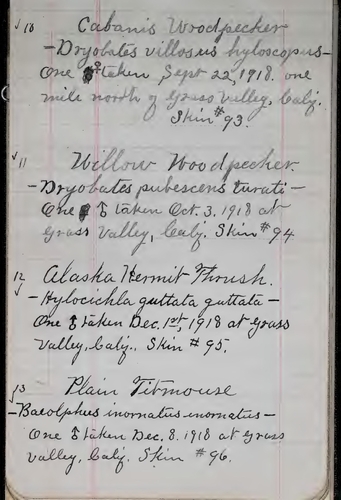 √10 Cabanis Woodpecker
-Dryobates villosus hyloscopus-
One ♀ taken, Sept 22, 1918. one
mile north of Grass Valley, Calif.
Skin #93.
√11 Willow Woodpecker.
-Dryobates pubescens turati-
One ♂ taken Oct. 3, 1918 at
Grass Valley, Calif. Skin #94
12 √ Alaska Hermit Thrush.
-Hylocichla guttata guttata-
One ♂ taken Dec. 1st, 1918 at Grass
Valley, Calif. Skin #95.
√13 Plain Titmouse
-Baeolphus inornatus inornatus-
One ♂ taken Dec. 8. 1918 at Grass
Valley, Calif. Skin #96.